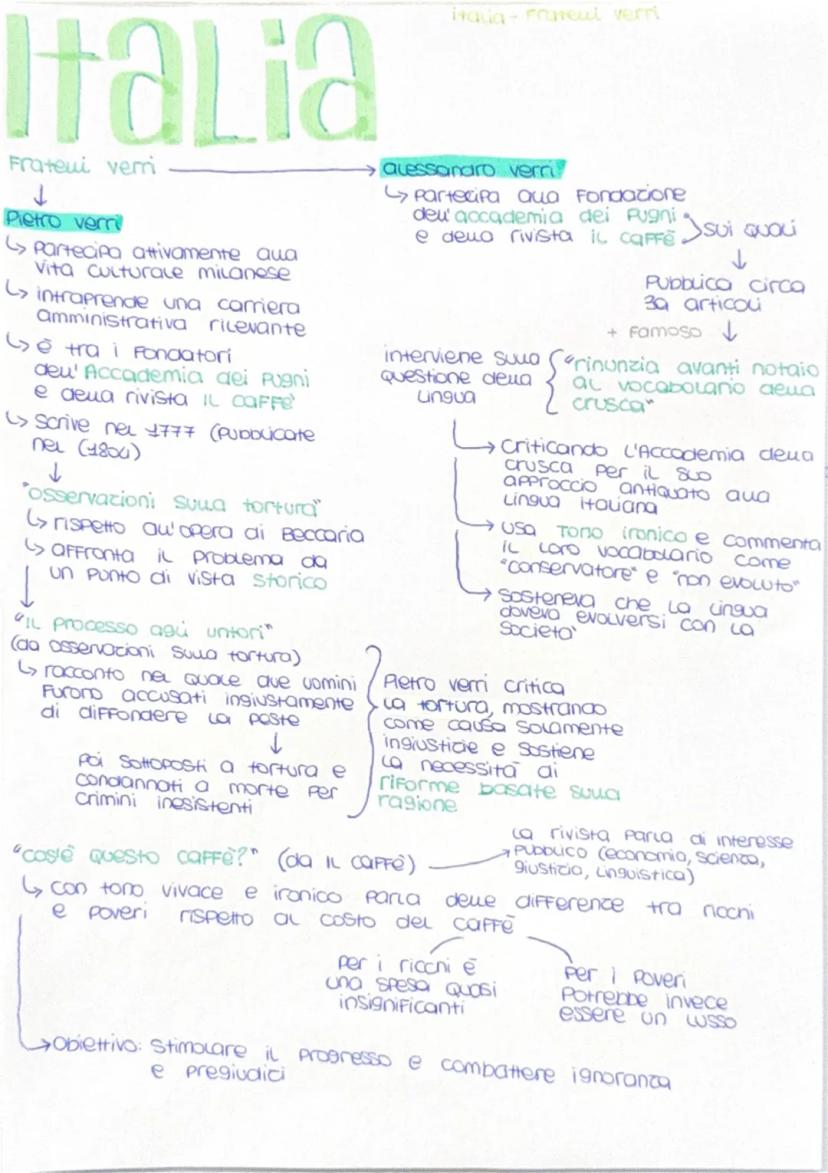 italia - Fratelli verri
Italia
Fratelli verri
Pietro verri
Partecipa attivamente alla
vita culturale milanese
intraprende una carriera
amministrativa rilevante
è tra i Fondatori
dell'Accademia dei Pugni
e della rivista IL CAFFÈ
Scrive nel 1777 (Pubblicate
nel (1804)
"osservazioni sulla tortura"
rispetto all'opera di Beccaria
affronta il problema da
un punto di vista storico
"IL Processo agli untori"
(da osservazioni sulla tortura)
racconto nel quale due uomini
furono accusati ingiustamente
di diffondere la peste
Poi sottoposti a tortura e
condannati a morte per
crimini inesistenti
Pietro verri critica
la tortura, mostrando
come causa solamente
ingiustizie e sostiene
la necessità di
riforme basate sulla
ragione
alessandro verri
Partecipa alla Fondazione
dell'accademia dei Pugni
e della rivista il caffè
sui quali
Pubblica circa
30 articoli
+ Famoso
interviene sulla
questione della
lingua
"rinunzia avanti notaio
al vocabolario della
crusca"
Criticando L'Accademia della
crusca per il suo
approccio antiquato alla
lingua italiana
usa Tono ironico e commenta
il loro vocabolario come
"conservatore" e "non evoluto"
Sosteneva che la lingua
doveva evolversi con la
società
"cos'è questo caffè?" (da IL CAFFÈ)
La rivista parla di interesse
Pubblico (economia, scienza,
giustizia, linguistica)
con tono vivace e ironico parla delle differenze tra ricchi
e poveri rispetto al costo del caffè
Per i ricchi è
una spesa quasi
insignificanti
Per i Poveri
Potrebbe invece
essere un lusso
Obiettivo: Stimolare il progresso e combattere ignoranza
e pregiudizi